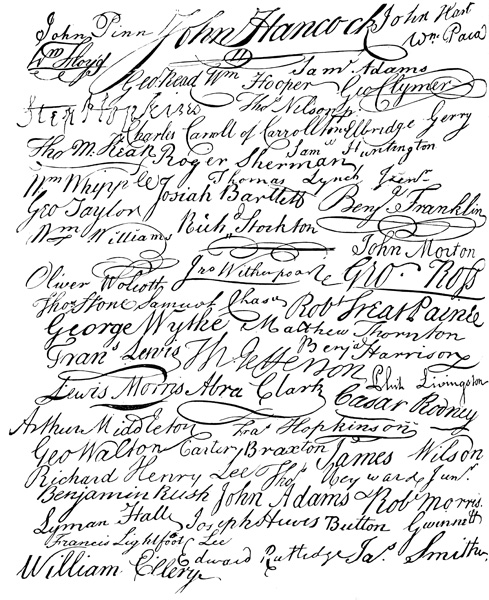 John Penn John Hancock John Hart
Wm Floyd Wm Paca
Geo Read Wm Hooper Saml Adams Geo Clymer
Step Hopkins Thos Nelson jr.
Charles Carroll of Carrollton Elbridge Gerry
Tho M:Kean Roger Sherman Saml Huntington
Wm Whipple Josiah Bartlett Thomas Lynch Junr.
Geo Taylor Benj. Franklin
Wm Williams Richd Stockton John Morton
Oliver Wolcott Jno Witherspoon Geo. Ross
Thos Stone Samuel Chase Robt Treat Paine
George Wythe Matthew Thornton
Frans. Lewis Th Jefferson Benja Harrison
Lewis Morris Abra Clark Phil. Livingston
Arthur Middleton Fras. Hopkinson Caesar Rodney
Geo Walton Carter Braxton James Wilson
Richard Henry Lee Thos. Heyward Junr.
Benjamin Rush John Adams Robt Morris
Lyman Hall Joseph Hewes Button Gwinnett
Francis Lightfoot Lee
William Ellery Edward Rutledge Jas. Smith